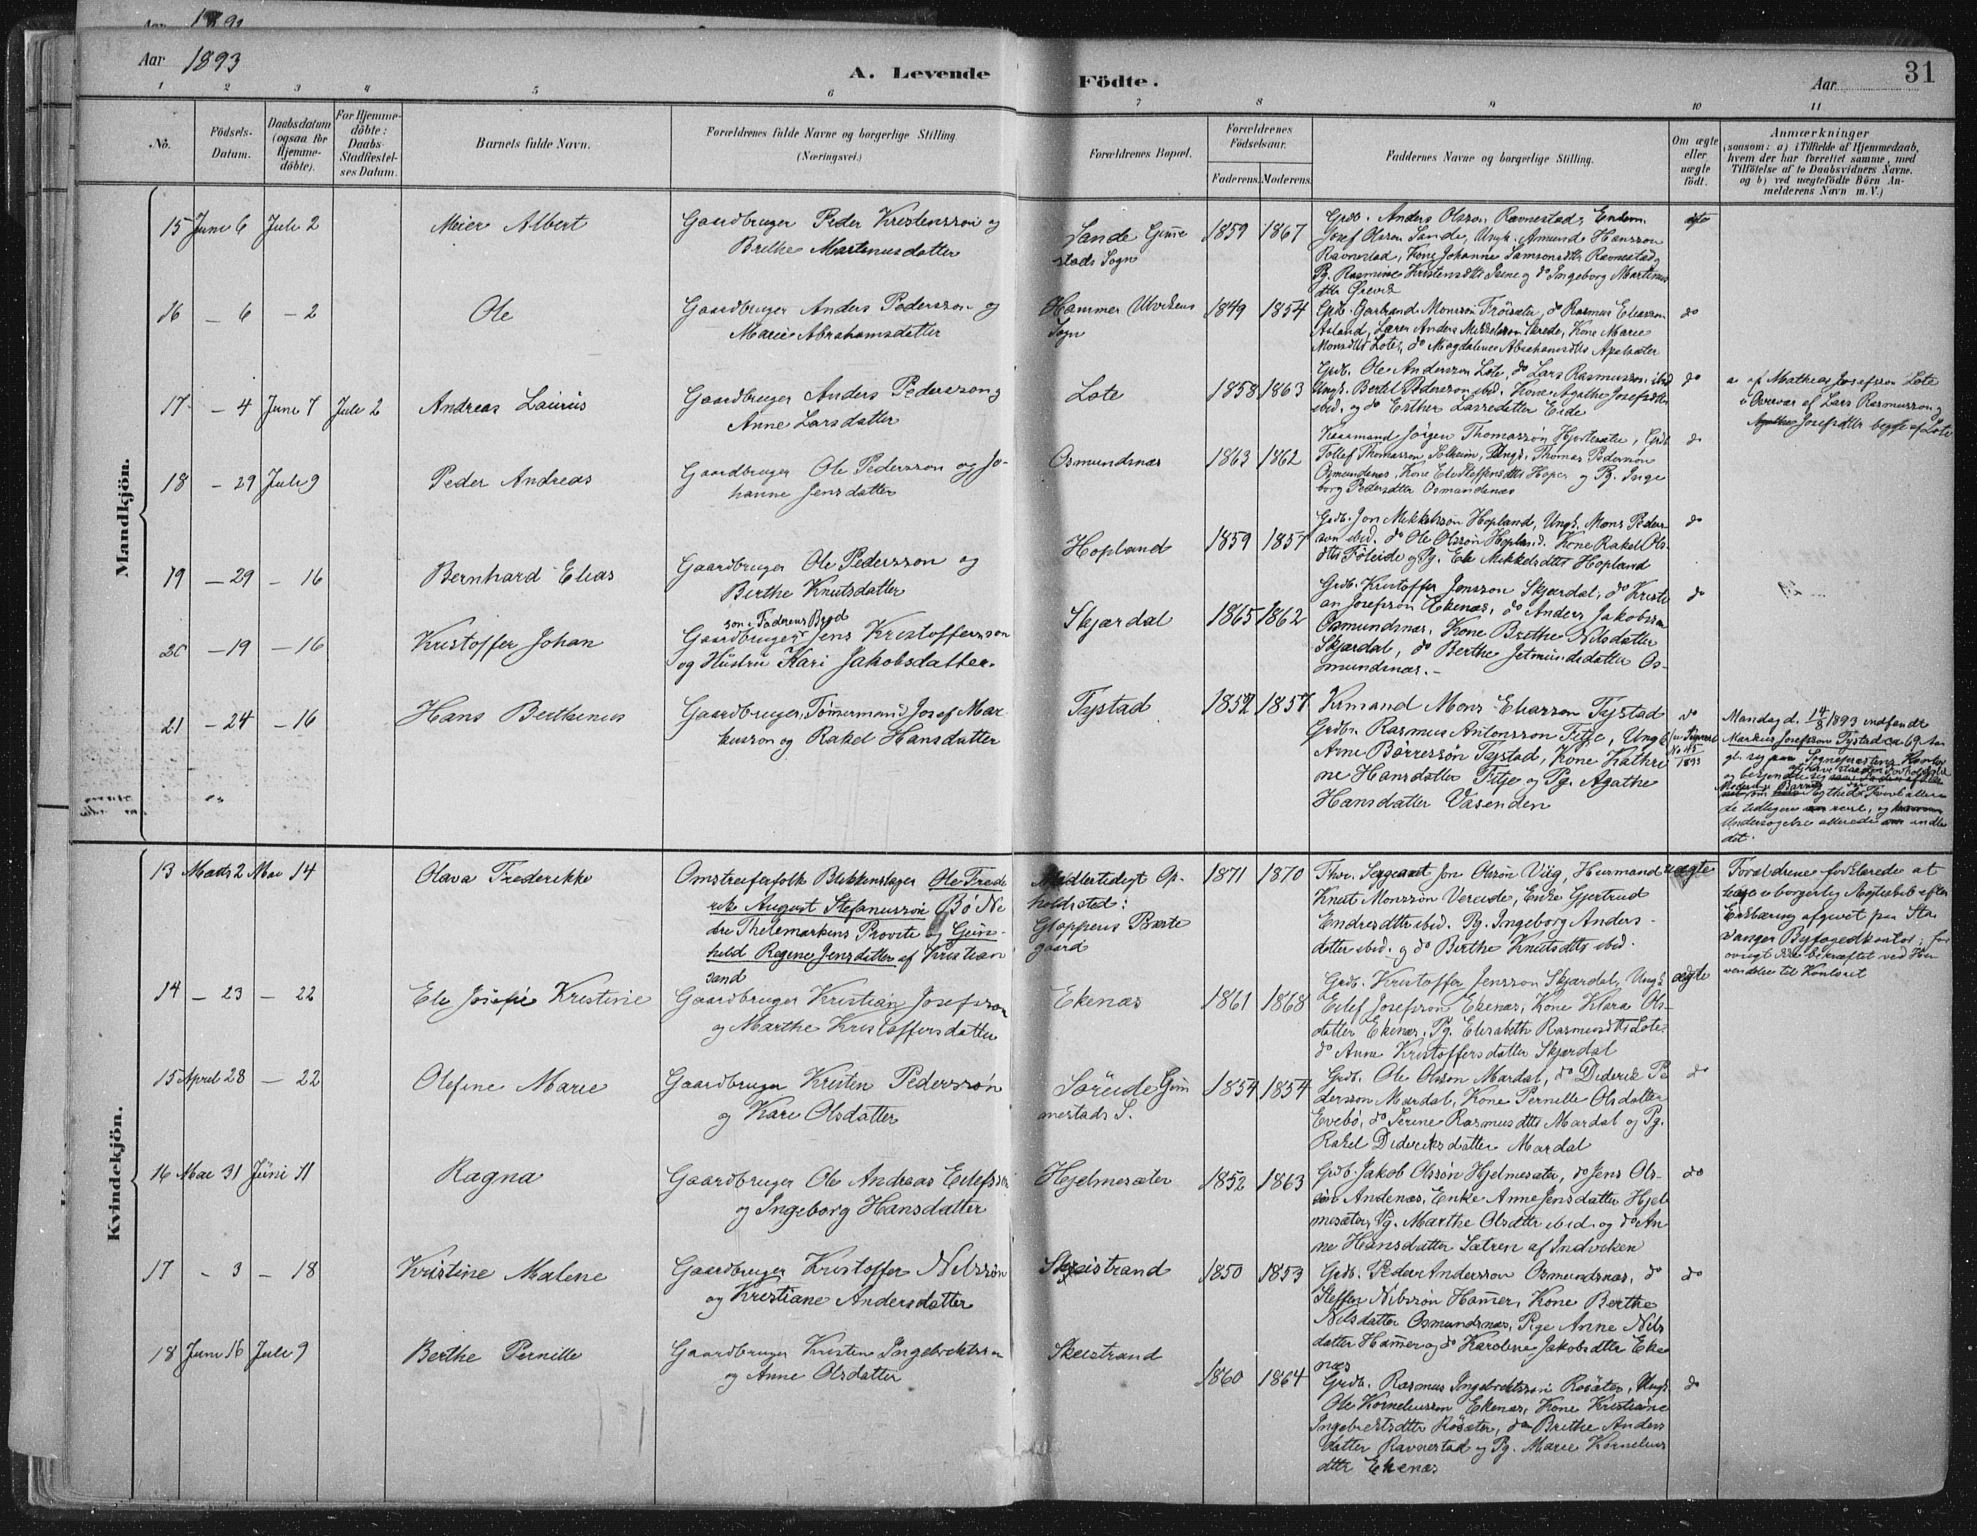 Aar 1893
A. Levende Födte.
Aar
31
1 2 3 4 5 6 7 8 9 10 11
No.
Födsels-
Datum.
Daabsdatum
(ogsaa for
Hjemme-
döbte).
For Hjemme-
döbte:
Daabs-
Stadfæstel-
ses Datum.
Barnets fulde Navn.
Forældrenes fulde Navne og borgerlige Stilling.
(Næringsvei.)
Forældrenes Bopæl.
Forældrenes
Födselsaar.
Faderens. Moderens.
Faddernes Navne og borgerlige Stilling.
Om ægte
eller
uægte
födt.
Anmærkninger
(saasom: a) i Tilfælde af Hjemmedaab,
hvem der har forrettet samme, med
Tilföielse af to Daabsvidners Navne.
og b) ved uægtefödte Börn An-
melderens Navn m. V.)
Mandkjön.
15 Juni 6 Juli 2
Meier Albert
Gaardbruger Peder Kristensson og
Brithe Martinusdatter
Sande Gimme
stads Sogn
1859 1867
Grdb. Anders Olsson Ravnestad, Enkem.
Josef Olsson Sande, Ungk. Amund Hansson
Ravnestad, Kone Johanne Samsonsdtr Ravnestad,
Pg. Rasmine Kristensdtr Isene og do Ingeborg Martinus
dttr
ægte
16 – 6 – 2
Ole
Gaardbruger Anders Pedersson og
Marie Abrahamsdatter
Hammer Utvikens
Sogn
1849 1854
Grdb. Garbrand Monsson Fröisæter, do Rasmus Eliasson
Aaland, Lærer Anders Mikkelsson, Kone Marie
Monsdtr Lote, do Magdalene Abrahamsdtr Apelsæter
do
17 – 4 Juni 7 Juli 2
Andreas Laurus
Gaardbruger Anders Pedersson og
Anne Larsdatter
Lote
1858 1863
Grdb. Ole Andersson Lote, do Lars Rasmusson ibid
Ungk. Bertel Pedersson ibid. Kone Agathe Josefsdtr
ibid. og do Esther Lassedatter Eide
do
a. af Mathias Josefsson Lote
i Overvær af Lars Rasmusson og
Agathe Josefsdttr begge af Lote
18 – 29 Juli 9
Peder Andreas
Gaardbruger Ole Pedersson og Jo-
hanne Jensdatter
Osmundsnæs
1863 1862
Kaarmand Jörgen Thomassön Hjortesæter, Grdb
Tollef Thomasson Solheim, Ungk. Thomas Pedersön
Osmundsnæs, Kone Eli Steffensdtr Hope og Pg. Inge
borg Pedersdttr Osmundsnæs
do
19 – 29 – 16
Bernhard Elias
Gaardbruger Ole Pedersson og
Berthe Knutsdatter
Hopland
1859 1857
Grdb. Jon Mikkelsson Hopland, Ungk. Mons Peders
son ibid. do Ole Olsson Hopland. Kone Rakel Ols-
dtr Föleide og Pg. Eli Mikkelsdttr Hopland
do
20 – 19 – 16
Kristoffer Johan
Gaardbruger Jens Kristoffersson
og Hustru Kari Jakobsdatter.
Skjærdal
1865 1862
Grdb. Kristoffer Jensson Skjærdal, do Kristi
an Josefsson Ekenæs, do Anders Jakobsson
Osmundsnæs, Kone Brithe Nilsdatter
Skjærdal, do Berthe Jetmundsdatter Os-
mundsnæs.
do
21 – 24 – 16
Hans Berthinus
Gaardbruger, Tömermand Josef Mar
kusson og Rakel Hansdatter
Tystad
1852 1857
Krmand Mons Eliasson Tystad
Grdbr. Rasmus Antonsson Fitje, Ungk
Arne Börressön Tystad, Kone Kathri
ne Hansdatter Fitje og Pg. Agathe
Hansdatter Vasenden
do
1893
Mandag d. 14/8 1893 indfandt
Markus Josefsson Tystad ca 69 Aar
gl. sig
Undersögelse allerede indle
det.
Kvindekjön.
13 Marts 2 Mai 14
Olava Frederikke
Omstreiferfolk Blikkenslager Ole Frede
rik August Stefanussön Bö Ne
dre Thelemarkens Provsti og Gun-
hild Regine Jensdatter af Kristian
sand
Midlertidigt Op-
holdssted:
Gloppens Præste
gaard
1871 1870
Thv. Sergeant Jon Olsön Viig, Huusmand
Knut Monsson Vereide, Enke Gjertrud
Endresdttr ibid. Pg. Ingeborg Anders-
datter ibid. og do Berthe Knutsdttr ibid.
uægte
Forældrene forklarede at
leve i borgerlig Ægteskab efter
Erklæring afgivet paa Sta
vanger Byfogedkontor; for
övrigt ikke bekræftet ved Hen
vendelse til Kontoret
14 – 23 – 22
Eli Josefie Kristine
Gaardbruger Kristian Josefsson
og Marthe Kristoffersdatter
Ekenæs
1861 1868
Grdb. Kristoffer Jensson Skjærdal, Ungk
Eilef Josefsson Ekenæs, Kone Klara Ols-
datter Ekenæs, Pg. Elisabeth Rasmusdtr Lote.
do Anne Kristoffersdatter Skjærdal
ægte
15 April 28 – 22
Olefine Marie
Gaardbruger Kristen Pederssön
og Kari Olsdatter
Söreide Gim
mestads S.
1854 1854
Grdb. Ole Olsson Mardal, do Diderik Pe
dersson Mardal, Kone Pernille Olsdatter
Evebö, do Serine Rasmusdttr Mardal og Pg.
Rakel Dideriksdatter Mardal
do
16 Mai 31 Juni 11
Ragna
Gaardbruger Ole Andreas Eilefsson
og Ingeborg Hansdatter
Hjelmesæter
1852 1863
Grdb. Jakob Olssön Hjelmesæter, do Jens Ols-
sön Andenæs, Enke Anne Jensdatter Hjel
mesæter, Pg. Marthe Olsdttr ibid. og do An
ne Hansdatter Sætren af Indviken
do
17 – 3 – 18
Kristine Malene
Gaardbruger Kristoffer Nilssön
og Kristiane Andersdatter
Skeistrand
1850 1853
Grdb. Peder Andersson Osmundsnæs, do
Steffen Nilssön Hammer, Kone Berthe
Nilsdatter Osmundsnæs, Pige Anne Nils
datter Hammer og do Karoline Jakobsdttr Eke
næs
do
18 Juni 16 Juli 9
Berthe Pernille
Gaardbruger Kristen Ingebrektsson
og Anne Olsdatter
Skeistrand
1860 1864
Grdb. Rasmus Ingebrektssön Rösæter, Ungk.
Ole Korneliusson Ekenæs, Kone Kristiane
Ingebrektsdttr Rösæter, do Brithe Anders
datter Ravnestad og Pg. Marie Kornelius
dttr Ekenæs
do